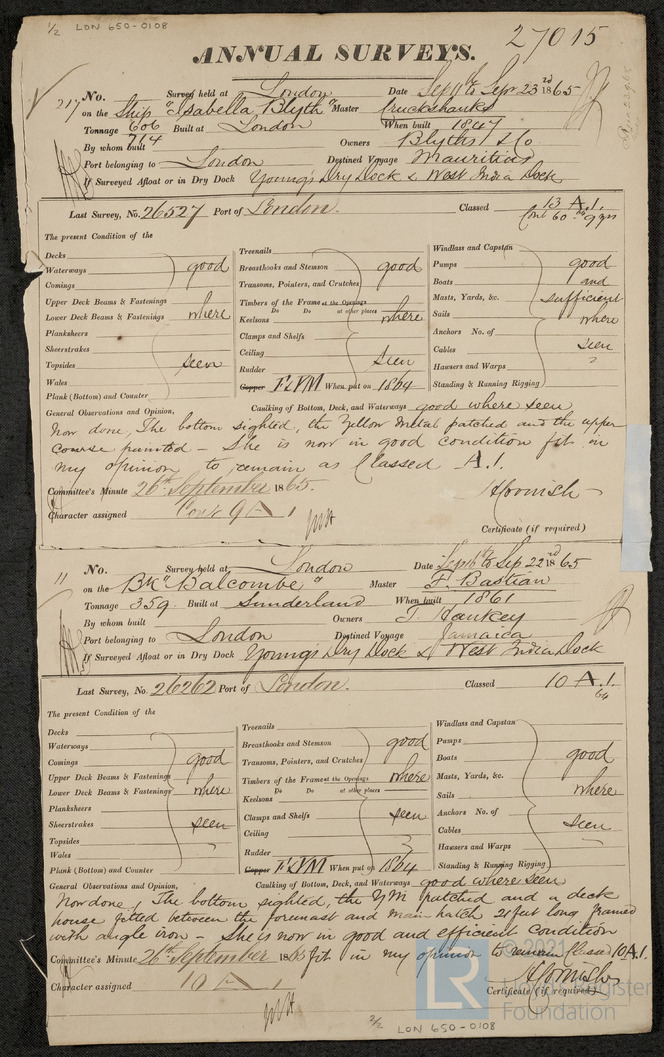 1/2 LON 650-0108
27015
ANNUAL SURVEYS.
217 No. Survey held at London Date Sep 11th to Sep 23rd 1865
on the Ship "Isabella Blyth" Master Cruckshanks
Tonnage 606 714 Built at London When built 1847
By whom built Owners Blyths & Co
Port belonging to London Destined Voyage Mauritius
If Surveyed Afloat or in Dry Dock Young's Dry Dock & West India Dock
Last Survey, No. 26527 Port of London. Classed 13 A.1.
Cont 60 9 yrs
The present Condition of the
Decks
Waterways
Comings
Upper Deck Beams & Fastenings
Lower Deck Beams & Fastenings
Planksheers
Sheerstrakes
Topsides
Wales
Plank (Bottom) and Counter
good
where
seen
Treenails
Breasthooks and Stemson
Transoms, Pointers, and Crutches
Timbers of the Frame at the Openings
Do Do at other places
Keelsons
Clamps and Shelfs
Ceiling
Rudder
Copper F&YM When put on 1864
good
where
seen
Windlass and Capstan
Pumps
Boats
Masts, Yards, &c.
Sails
Anchors No. of
Cables
Hawsers and Warps
Standing & Running Rigging
good
and
sufficient
where
seen
General Observations and Opinion, Caulking of Bottom, Deck, and Waterways good where seen
Now done, The bottom sighted, the Yellow Metal patched and the upper
course painted – She is now in good condition fit in
my opinion to remain as Classed A.1.
Committee's Minute 26th September 1865.
Character assigned Cont 9 A 1
A Cornish
Certificate (if required)
11 No. Survey held at London Date Sep to Sep 22nd 1865
on the Bk "Balcombe" Master F. Bastian
Tonnage 359. Built at Sunderland When built 1861
By whom built Owners T Hankey
Port belonging to London Destined Voyage Jamaica
If Surveyed Afloat or in Dry Dock Young's Dry Dock & West India Dock
Last Survey, No. 26262 Port of London. Classed 10 A.1.
64
The present Condition of the
Decks
Waterways
Comings
Upper Deck Beams & Fastenings
Lower Deck Beams & Fastenings
Planksheers
Sheerstrakes
Topsides
Wales
Plank (Bottom) and Counter
good
where
seen
Treenails
Breasthooks and Stemson
Transoms, Pointers, and Crutches
Timbers of the Frame at the Openings
Do Do at other places
Keelsons
Clamps and Shelfs
Ceiling
Rudder
Copper F&YM When put on 1864
good
where
seen
Windlass and Capstan
Pumps
Boats
Masts, Yards, &c.
Sails
Anchors No. of
Cables
Hawsers and Warps
Standing & Running Rigging
good
where
seen
General Observations and Opinion, Caulking of Bottom, Deck, and Waterways good where seen
Now done, The bottom sighted, the YM patched and a deck
house fitted between the foremast and main hatch 21 feet long framed
with angle iron – She is now in good and efficient condition
Committee's Minute 26th September 1865 fit in my opinion to remain Classed 10 A.1.
Character assigned 10 A 1
A Cornish
Certificate (if required)
2/2 LON 650-0108
© 2021
LR Lloyd's Register
Foundation